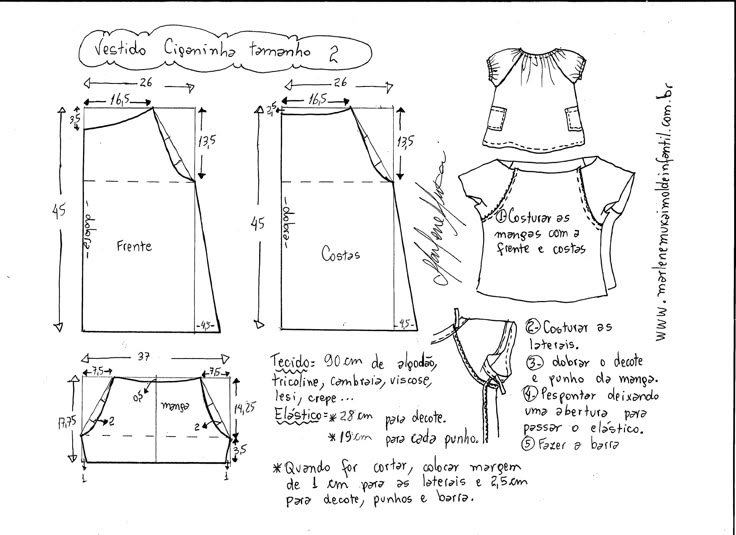 Vestido Ciganinha tamanho 2
26
16,5
3,5
13,5
45
-dobra-
Frente
4,5
26
16,5
2,5
13,5
45
-dobra-
Costas
4,5
Marlene Mukai
www.marlenemukaimoldeinfantil.com.br
① Costurar as
mangas com a
frente e costas
②- Costurar as
laterais.
③- dobrar o decote
e punho da manga.
④- Pespontar deixando
uma abertura para
passar o elástico.
⑤ Fazer a barra
37
7,5
7,5
0,5
manga
17,75
14,25
2
2
3,5
1
1
Tecido= 90 cm de algodão,
tricoline, cambraia, viscose,
lesi, crepe...
Elástico=* 28 cm para decote.
* 19 cm para cada punho.
* Quando for cortar, colocar margem
de 1 cm para as laterais e 2,5 cm
para decote, punhos e barra.